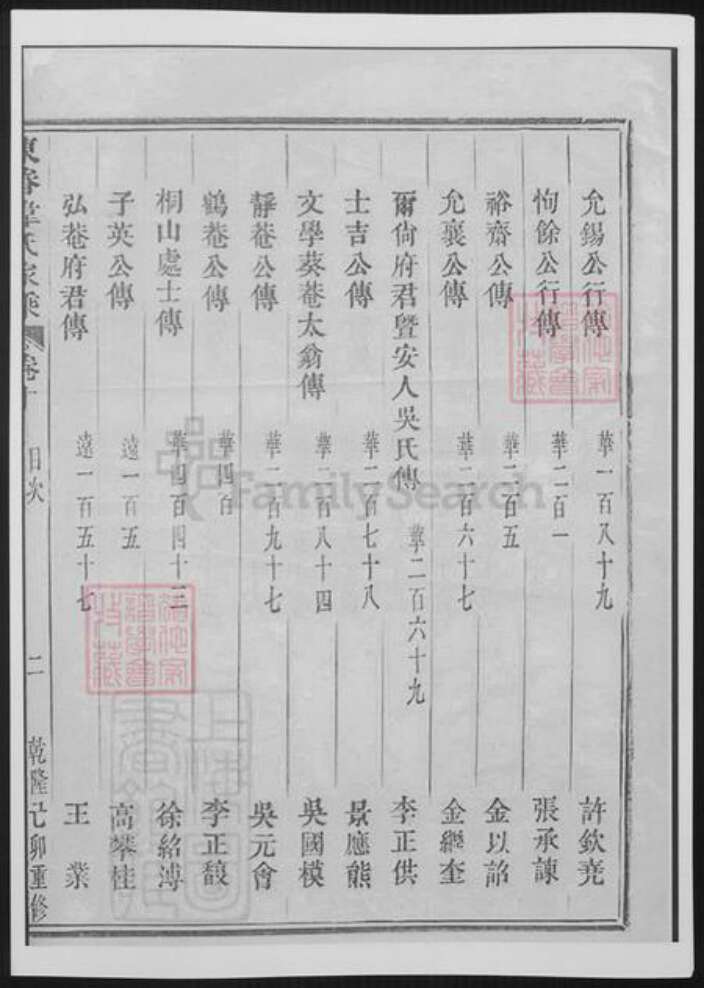 允錫公行傳 華一百八十九 許欽堯
恂餘公行傳 華二百一 張承諫
裕齋公傳 華二百五 金以詔
允襄公傳 華二百六十七 金繼奎
爾尙府君曁安人吳氏傳 華二百六十九 李正供
士吉公傳 華二百七十八 景應熊
文學葵菴太翁傳 華二百八十四 吳國模
靜菴公傳 華二百九十七 吳元會
鶴菴公傳 華四百 李正馥
桐山處士傳 華四百四十三 徐紹溥
子英公傳 遠一百五 高攀桂
弘菴府君傳 遠一百五十七 王業
東眷韋氏家乘 卷十 目次 二 乾隆己卯重修
FamilySearch